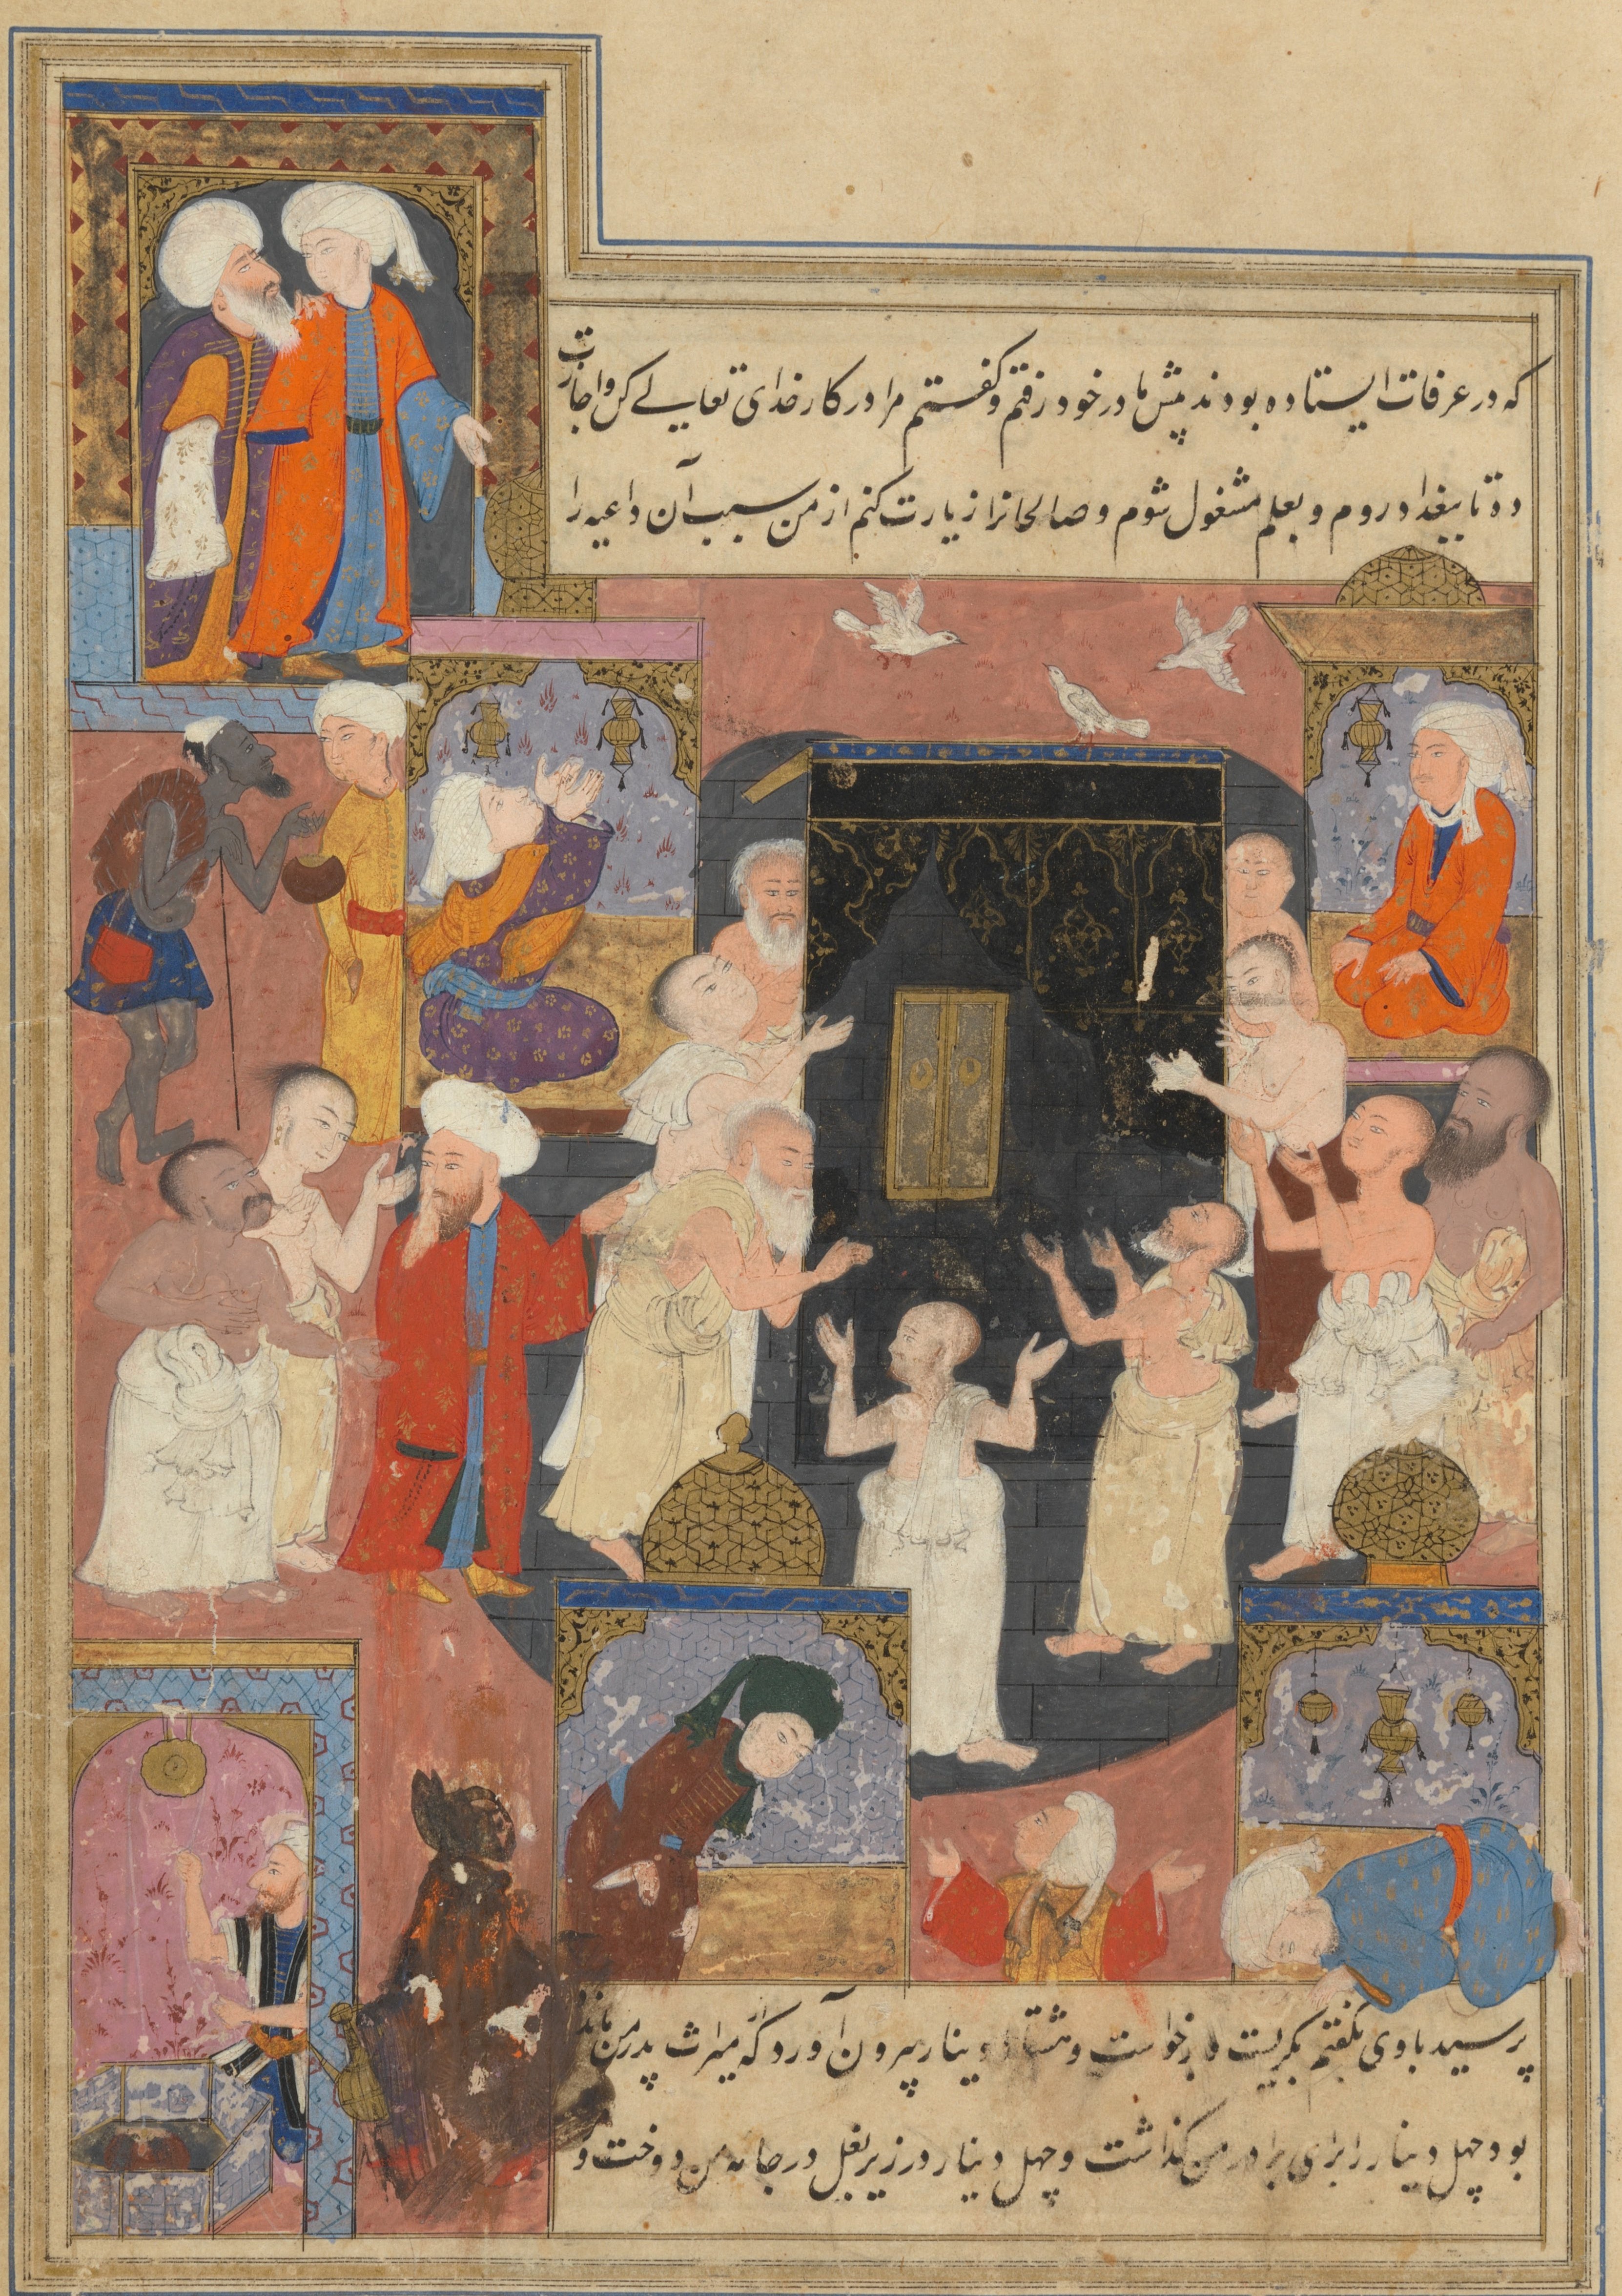 که در عرفات ایستاده بودند پیش مادر خود رفتم و گفتم مرا در کار خدای تعالی کن و اجازت
ده تا ببغداد روم و بعلم مشغول شوم و صالحانرا زیارت کنم از من سبب آن داعیه را
پرسید باوی بگفتم بگریست و برخواست و هشتاد دینار بیرون آورد که میراث پدر من مانده
بود چهل دینار را برای برادر من گذاشت و چهل دینار در زیر بغل در جامه من دوخت و